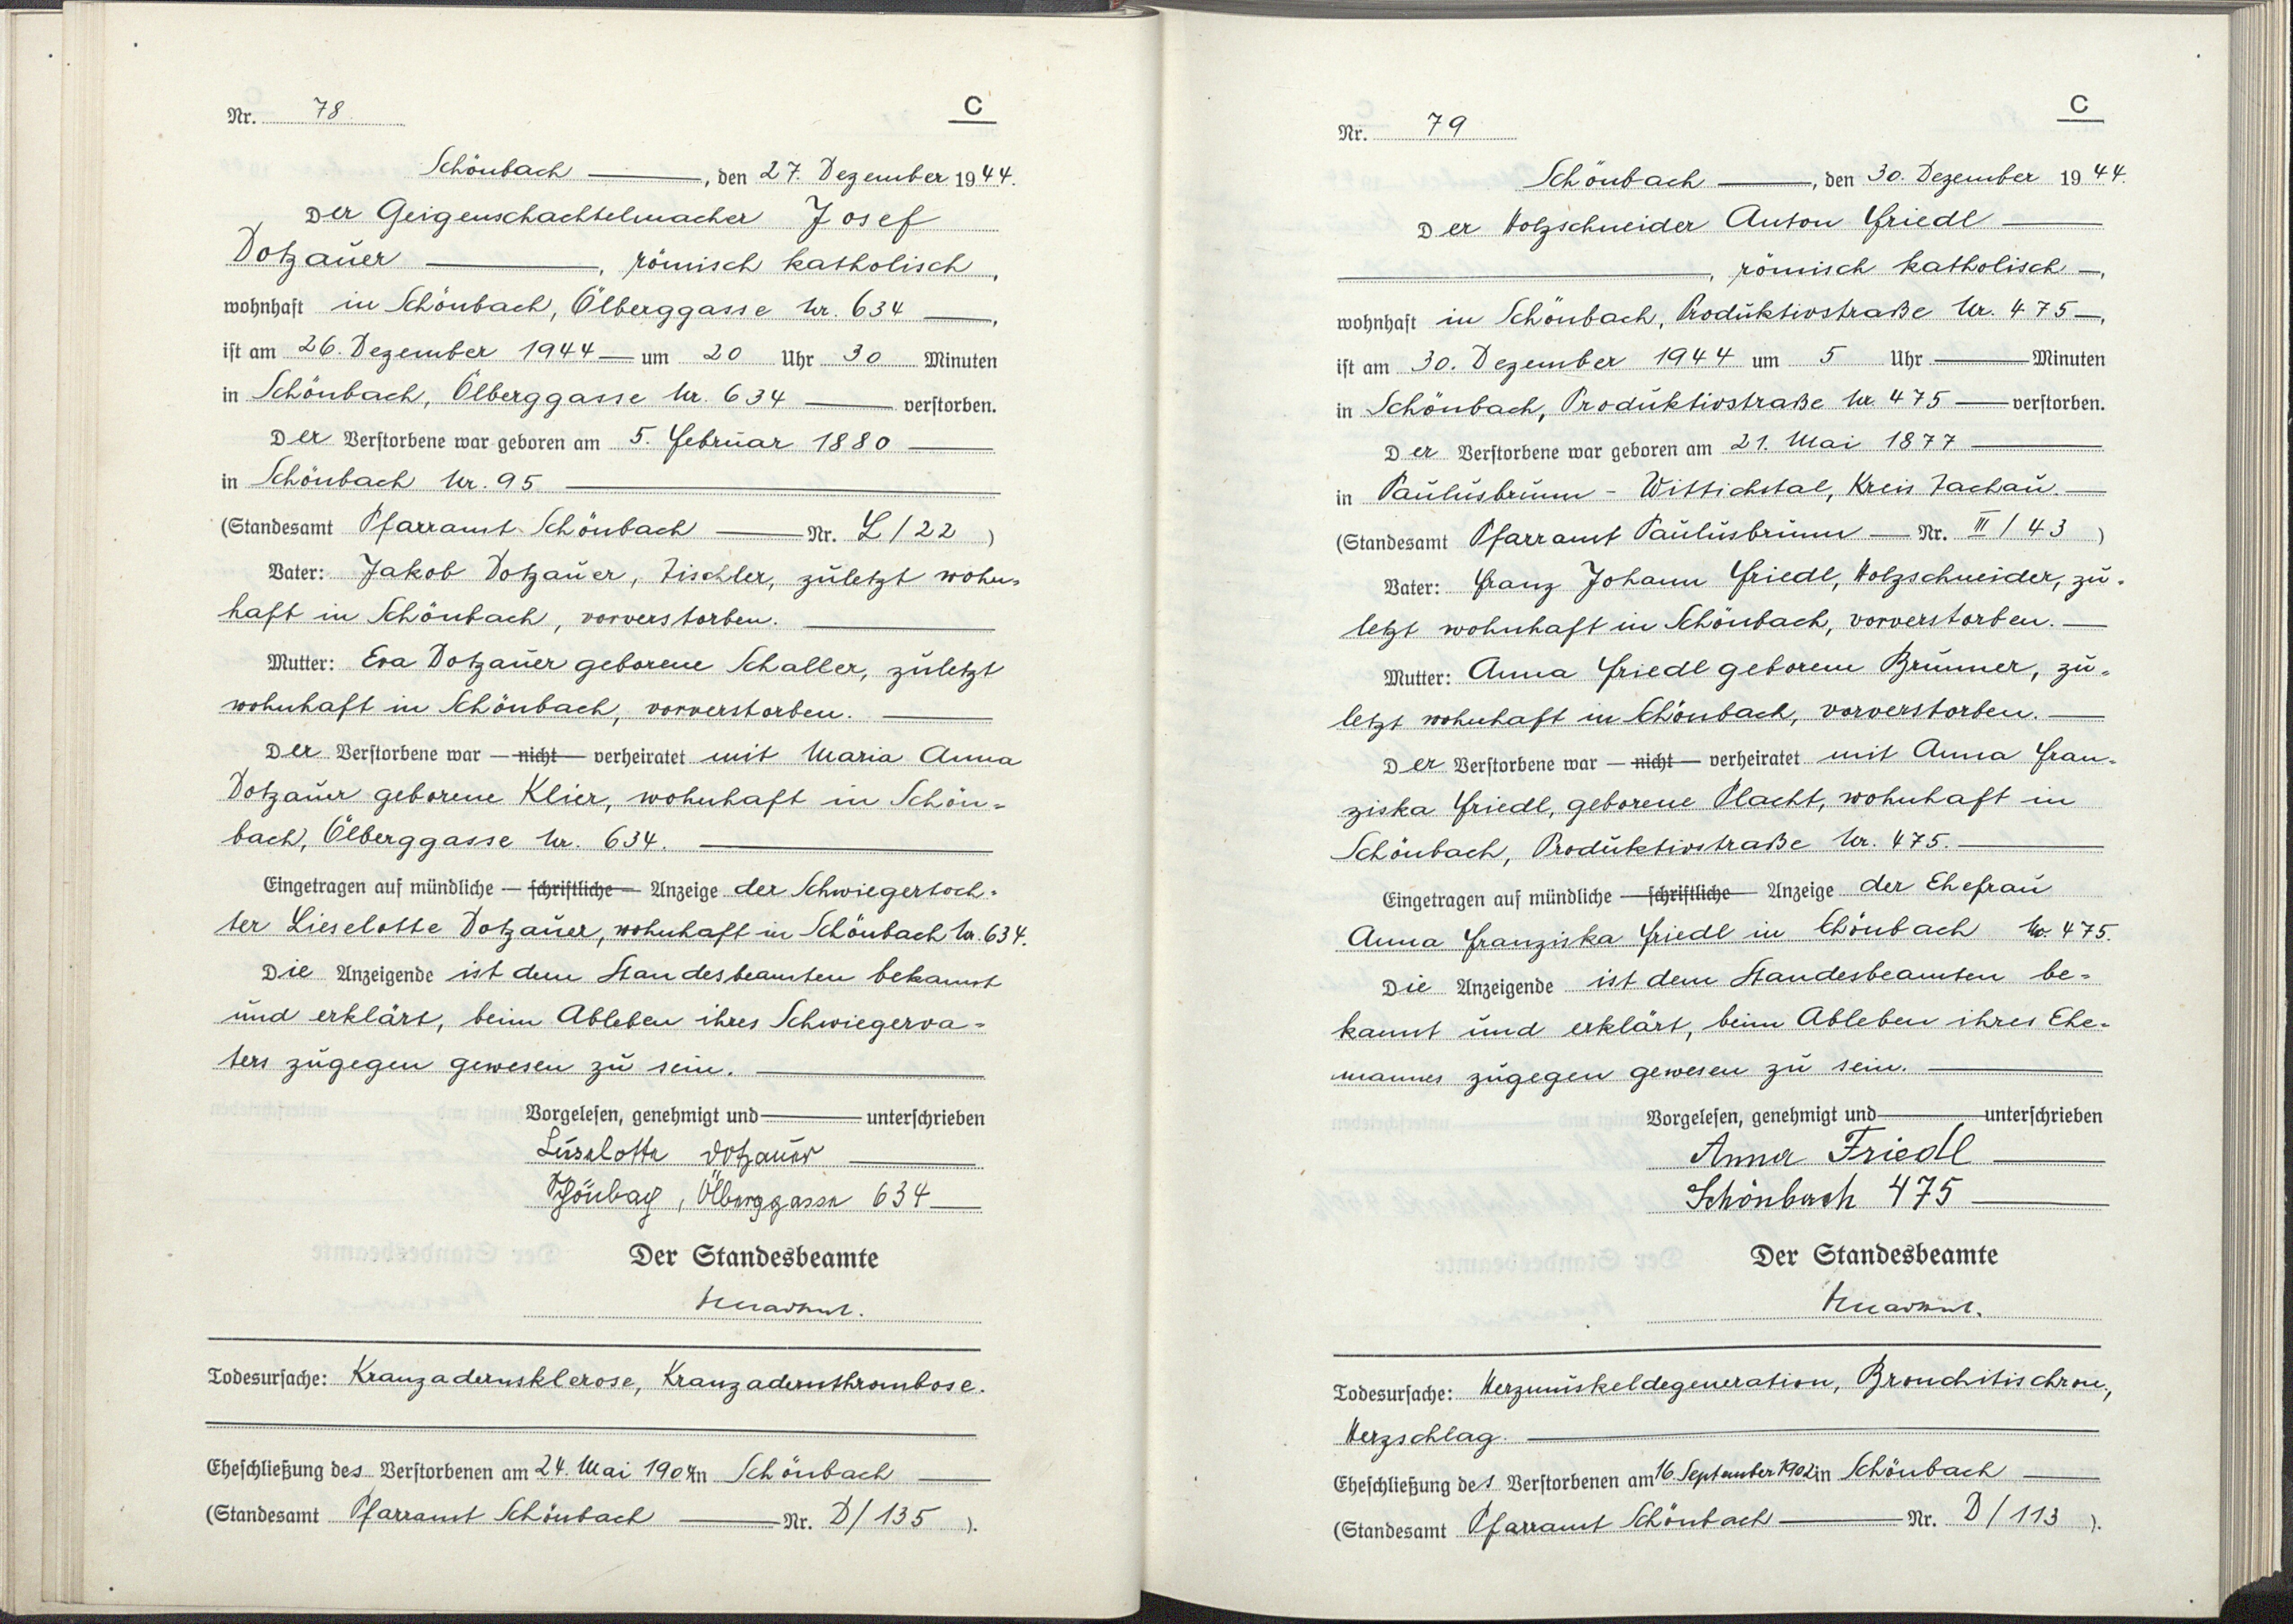 Nr. 78.
C
Schönbach, den 27. Dezember 1944.
Der Geigenschachtelmacher Josef
Dotzauer, römisch katholisch,
wohnhaft in Schönbach, Ölberggasse Nr. 634,
ist am 26. Dezember 1944 um 20 Uhr 30 Minuten
in Schönbach, Ölberggasse Nr. 634 verstorben.
Der Verstorbene war geboren am 5. Februar 1880
in Schönbach Nr. 95
(Standesamt Pfarramt Schönbach Nr. L/22)
Vater: Jakob Dotzauer, Tischler, zuletzt wohn=
haft in Schönbach, vorverstorben.
Mutter: Eva Dotzauer geborene Schaller, zuletzt
wohnhaft in Schönbach, vorverstorben.
Der Verstorbene war — nicht — verheiratet mit Maria Anna
Dotzauer geborene Klier, wohnhaft in Schön=
bach, Ölberggasse Nr. 634.
Eingetragen auf mündliche — schriftliche — Anzeige der Schwiegertoch=
ter Lieselotte Dotzauer, wohnhaft in Schönbach Nr. 634.
Die Anzeigende ist dem Standesbeamten bekannt
und erklärt, beim Ableben ihres Schwiegerva=
ters zugegen gewesen zu sein.
Vorgelesen, genehmigt und unterschrieben
Lieselotte Dotzauer
Schönbach, Ölberggasse 634
Der Standesbeamte
Todesursache: Kranzadernsklerose, Kranzadernthrombose.
Eheschließung des Verstorbenen am 24. Mai 1904 in Schönbach
(Standesamt Pfarramt Schönbach Nr. D/135).
Nr. 79
C
Schönbach, den 30. Dezember 1944.
Der Holzschneider Anton Friedl
, römisch katholisch,
wohnhaft in Schönbach, Produktivstraße Nr. 475,
ist am 30. Dezember 1944 um 5 Uhr Minuten
in Schönbach, Produktivstraße Nr. 475 verstorben.
Der Verstorbene war geboren am 21. Mai 1877
in Paulusbrunn - Wittichstal, Kreis Tachau.
(Standesamt Pfarramt Paulusbrunn Nr. III/43)
Vater: Franz Johann Friedl, Holzschneider, zu=
letzt wohnhaft in Schönbach, vorverstorben.
Mutter: Anna Friedl geborene Brunner, zu=
letzt wohnhaft in Schönbach, vorverstorben.
Der Verstorbene war — nicht — verheiratet mit Anna Fran=
ziska Friedl, geborene Placht, wohnhaft in
Schönbach, Produktivstraße Nr. 475.
Eingetragen auf mündliche — schriftliche — Anzeige der Ehefrau
Anna Franziska Friedl in Schönbach Nr. 475.
Die Anzeigende ist dem Standesbeamten be=
kannt und erklärt, beim Ableben ihres Ehe=
mannes zugegen gewesen zu sein.
Vorgelesen, genehmigt und unterschrieben
Anna Friedl
Schönbach 475
Der Standesbeamte
Todesursache: Herzmuskeldegeneration, Bronchitis chron.,
Herzschlag.
Eheschließung des Verstorbenen am 16. September 1902 in Schönbach
(Standesamt Pfarramt Schönbach Nr. D/113).